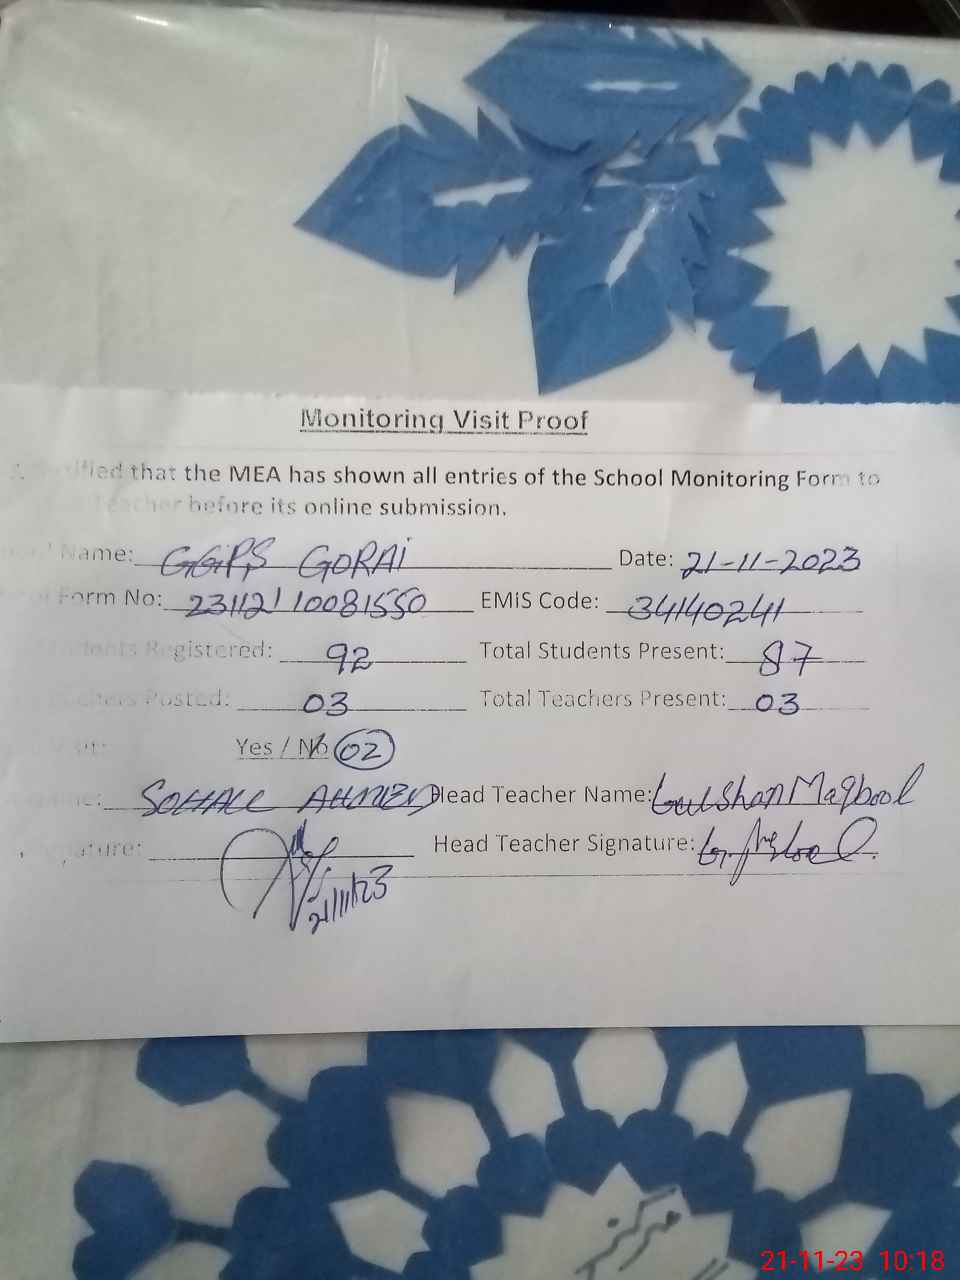 Monitoring Visit Proof
that the MEA has shown all entries of the School Monitoring Form to
Teacher before its online submission.
Name: GGPS GORAI Date: 21-11-2023
Form No: 23112110081550 EMiS Code: 34140241
Students Registered: 92 Total Students Present: 87
Teachers Posted: 03 Total Teachers Present: 03
Visit: Yes / No 02
Name: SOHAIL AHMED Head Teacher Name: Gulshan Maqbool
Signature: Head Teacher Signature:
21/11/23
مرکز
21-11-23 10:18